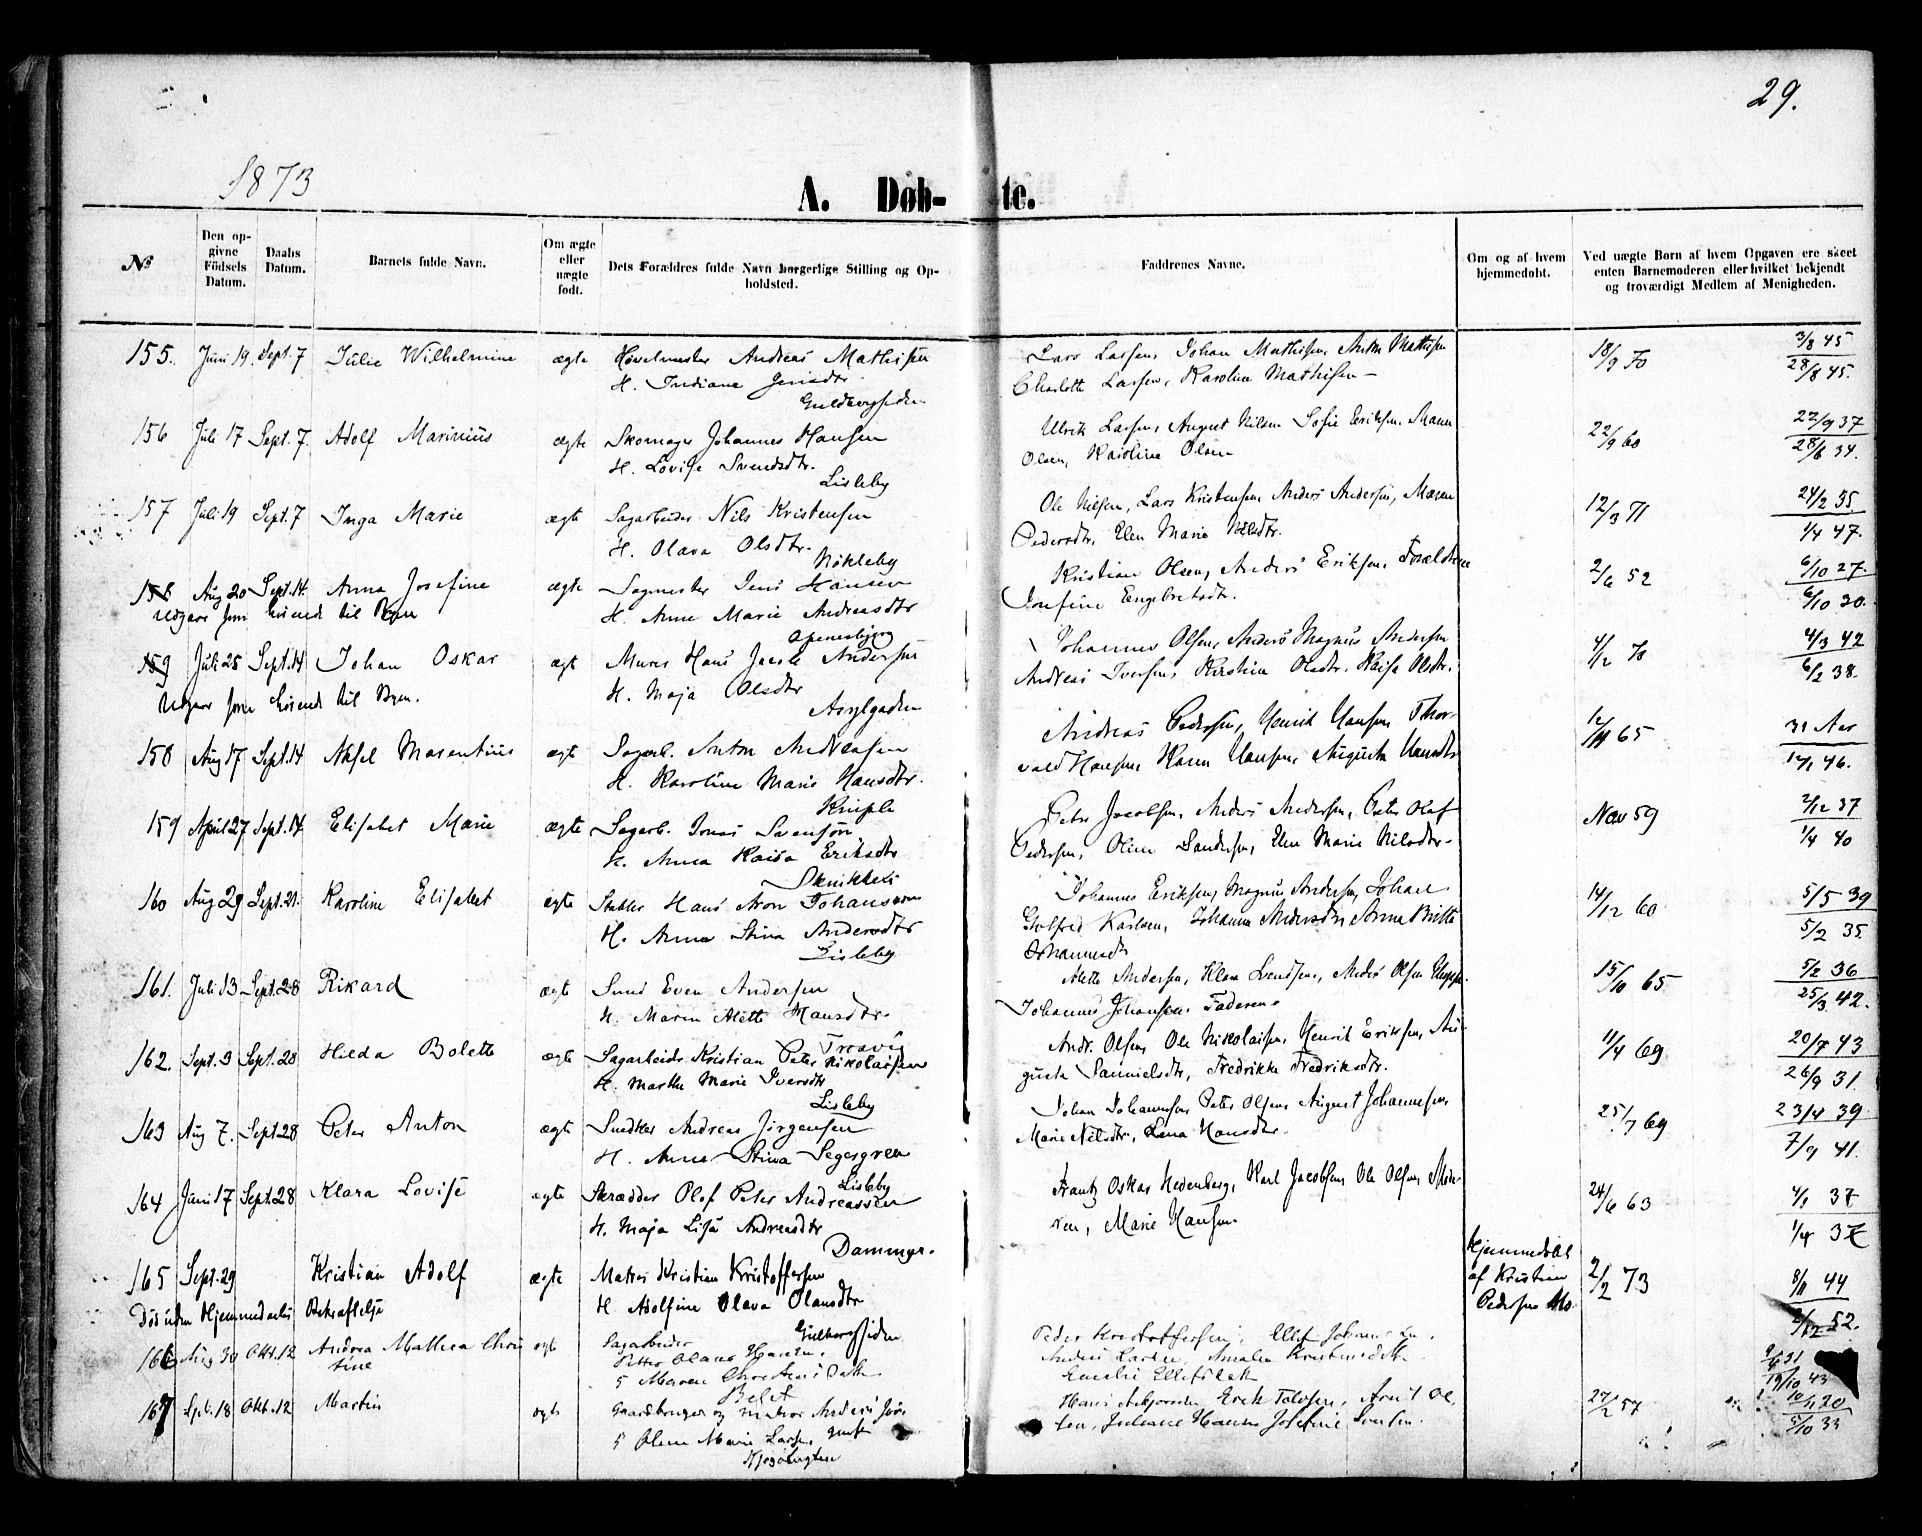 29.
1873
A. Døb- te.
№
Den op-
givne
Födsels
Datum.
Daabs
Datum.
Barnets fulde Navn.
Om ægte
eller
uægte
født.
Dets Forældres fulde Navn borgerlige Stilling og Op-
holdsted.
Faddrenes Navne.
Om og af hvem
hjemmedøbt.
Ved uægte Børn af hvem Opgaven ere skeet
enten Barnemoderen eller hvilket bekjendt
og troværdigt Medlem af Menigheden.
155. Juni 19. Sept. 7 Julie Wilhelmine ægte Høvelmester Andreas Mathisen Lars Larsen, Johan Mathisen, Anton Mathisen 18/9 70 3/8 45
H. Indiane Jensdtr. Charlotte Larsen, Karoline Mathisen 28/8 45.
Guldbergsiden
156 Juli 17 Sept. 7. Adolf Marinius ægte Skomager Johannes Hansen Ulrik Larsen, August Nilsen Sofie Eriksen, 22/9 60 22/9 37
H. Lovise Svendsdtr. Olsen, Karoline Olsen 28/6 34.
Lisleby
157 Juli 19 Sept. 7 Inga Marie ægte Sagarbeider Nils Kristensen Ole Nilsen, Lars Kristensen Anders Andersen, Maren 12/3 71 24/2 35
H. Olava Olsdtr. Pedersdtr, Elen Marie Nilsdtr. 1/4 47.
Nøkleby
158 Aug 20 Sept. 14. Anna Josefine ægte Sagmester Jens Hansen Kristian Olsen, Anders Eriksen, Forældrene 2/6 52 6/10 27.
Udgaar som hørende til Byen H. Anne Marie Andreasdtr Josefine Engebretsdtr. 6/10 30.
159 Juli 25 Sept. 14 Johan Oskar ægt Murer Hans Jacob Andersen Johannes Olsen, Anders Magnus Andersen 4/2 70 4/3 42
Udgaar som hørende til Byen. H. Maja Olsdtr Andreas Iversen, Kirstine Olsdtr. Kaisa Olsdtr. 6/2 38.
Asylgaden
158 Aug 17 Sept. 14 Aksel Marentius ægte Sagarb. Anton Andreasen Andreas Pedersen, Henrik Hansen Thor- 65 31 Aar
H. Karoline Marie Hansdtr. vald Hansen Karen Hansen, Augusta Hansdtr 46.
159 April 27 Sept. 14 Elisabet Marie ægte Sagarb. Jonas Svensøn Peter Jacobsen, Anders Andersen, Peter Olaf Nov 59 2/12 37
H. Anna Kaisa Eriksdtr Pedersen, Oline Sandersen, Elen Marie Nilsdtr. 1/4 40
160 Aug 29 Sept. 21. Karoline Elisabet ægte Stabler Hans Aron Johansson Johannes Eriksen, Magnus Andersen, Johan 14/12 60 5/5 39
H. Anna Stina Andersdtr Gotfred Karlsen, Johanna Andersdtr Anna Britta 5/2 35.
Lisleby Johannesdtr
161. Juli 13 Sept. 28 Rikard ægte Smed Even Andersen Alette Andersen, Klara Andersen, Anders Olsen 15/10 65 5/2 36
H. Maren Alette Hansdtr. Johannes Johansen. Faderen. 25/3 42.
Trosvig
162. Sept. 3 Sept. 28 Hilda Bolette ægte Sagarbeider Kristian Peter Nikolaisen Andr. Olsen, Ole Nikolaisen, Henrik Eriksen, Au- 11/4 69 20/7 43
H. Marthe Marie Iversdtr gusta Danielsdtr, Fredrikke Fredriksdtr. 26/9 31.
Lisleby
163 Aug 7. Sept 28 Peter Anton ægte Snedker Andreas Jörgensen Johan Johannesen Peter Olsen, August Johannesen, 25/7 69 23/4 39
H. Anna Stina Segersgren Marie Nilsdtr, Lena Hansdtr. 7/9 41.
Lisleby
164 Juni 17 Sept. 28 Klara Lovise ægte Skrædder Olof Peter Andreassen Frantz Oskar Hedenberg, Karl Jacobsen Ole Olsen, Mode- 24/6 63 37
H. Maja Lisa Andreasdtr ren, Marie Hansen. 1/4 37
Dammyr.
165 Sept. 29 Kristian Adolf ægte Matros Kristian Kristoffersen Hjemmedöbt af Kristian Pedersen 2/2 73 8/11 44
Död uden Hjemmedaabs Bekræftelse H. Adolfine Olava Olausdtr 52.
Gulbergsiden
166 Aug 30 Okt. 12 Andrea Mathea Chris- ægt Sagarbeider Peder Kristoffersen, Ellef Johannsen.
tine Petter Olaus Hansen. Anders Larsen, Amalia Kristiansdtr. 19/10 43
Emilie Ellefsdtr
167 Sept. 18 Okt. 12 Martin ægt Gaardbruger og matros Anders Jör- Hans Asbjørnsen Erik Tollefsen, 27/2 57 10/1 20
gensen Oline Marie Larsen Juliane Hansen Josefine Iversen. 5/10 33